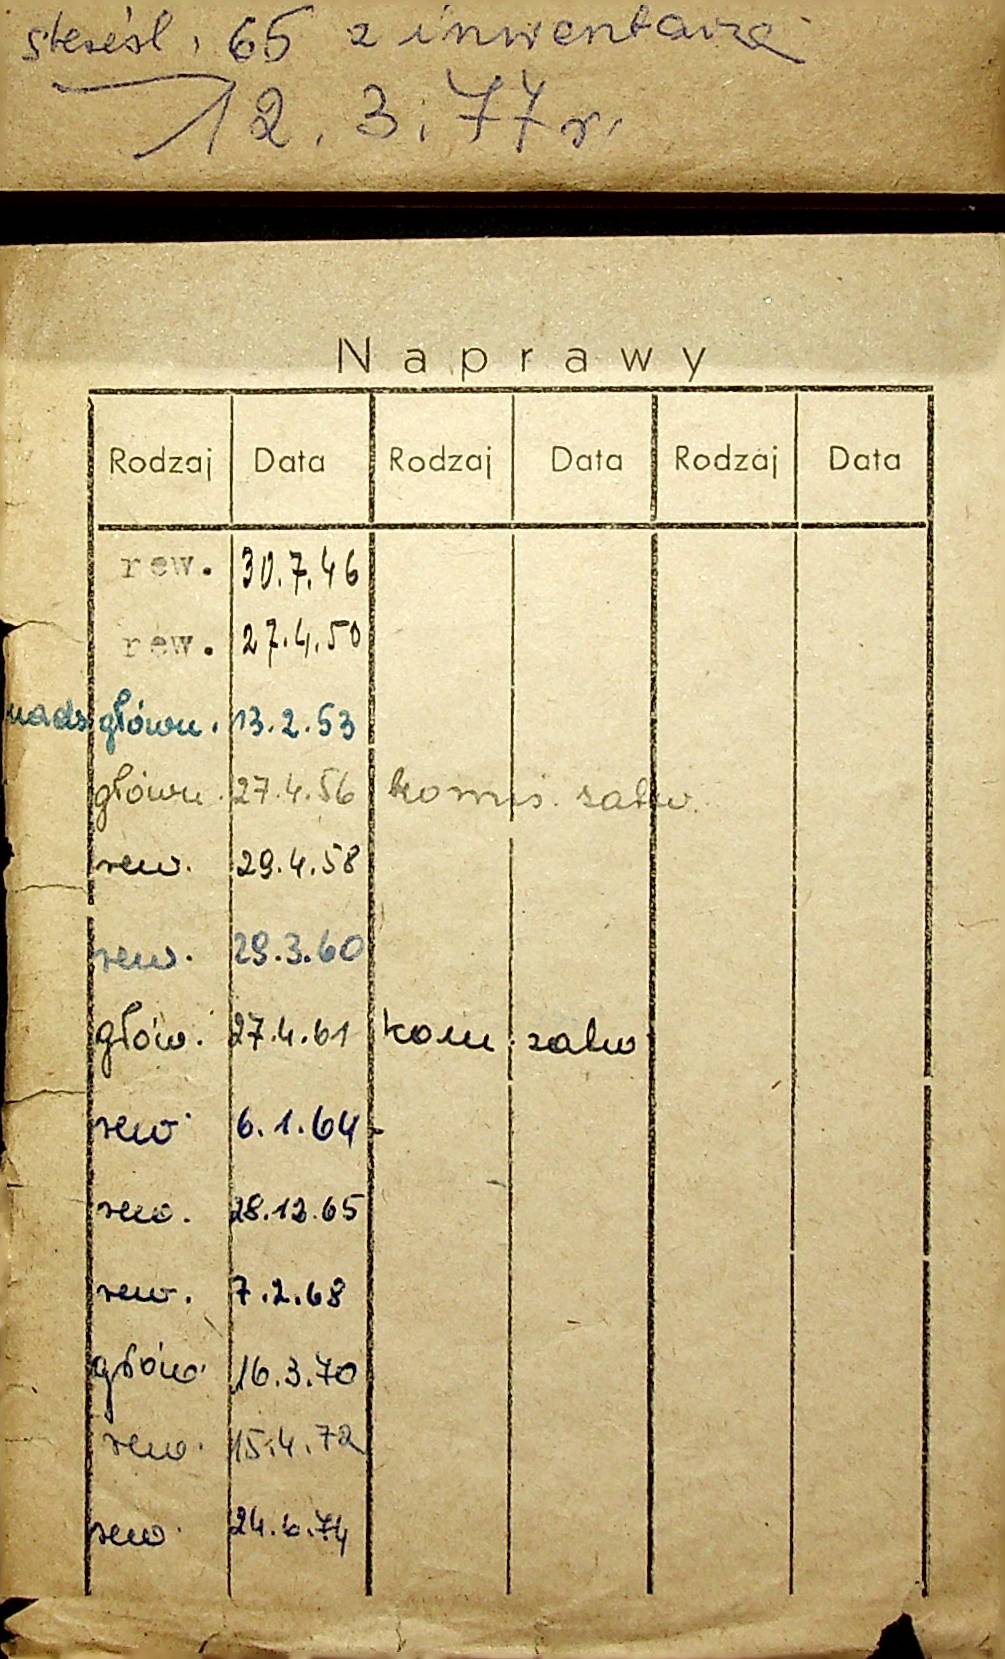 skreśl. 65 z inwentarza
12.3.77r.
Naprawy
Rodzaj Data Rodzaj Data Rodzaj Data
rew. 30.7.46
rew. 27.4.50
nads główn. 13.2.53
główn. 27.4.56 komis. zatw.
rew. 29.4.58
rew. 29.3.60
głów. 27.4.61 kom. zatw
rew 6.1.64
rew. 28.12.65
rew. 7.2.68
głów. 16.3.70
rew. 15.4.72
rew 24.6.74